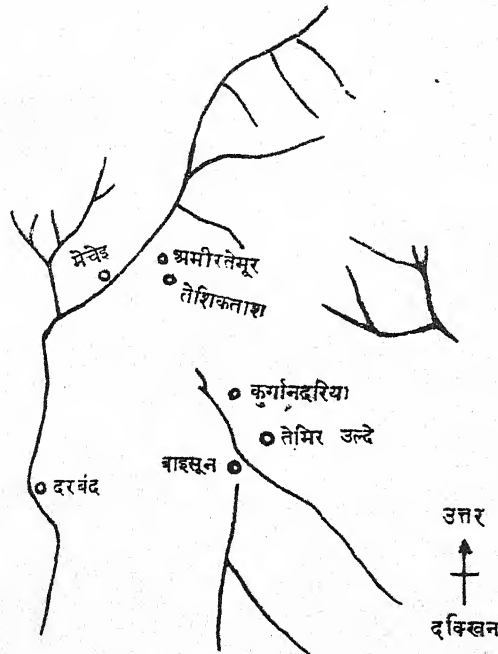 मेचेइ
अमीरतेमूर
तेशिकताश
कुर्गानदरिया
तेमिर उल्दे
बाइसून
दरबंद
उत्तर
दक्खिन